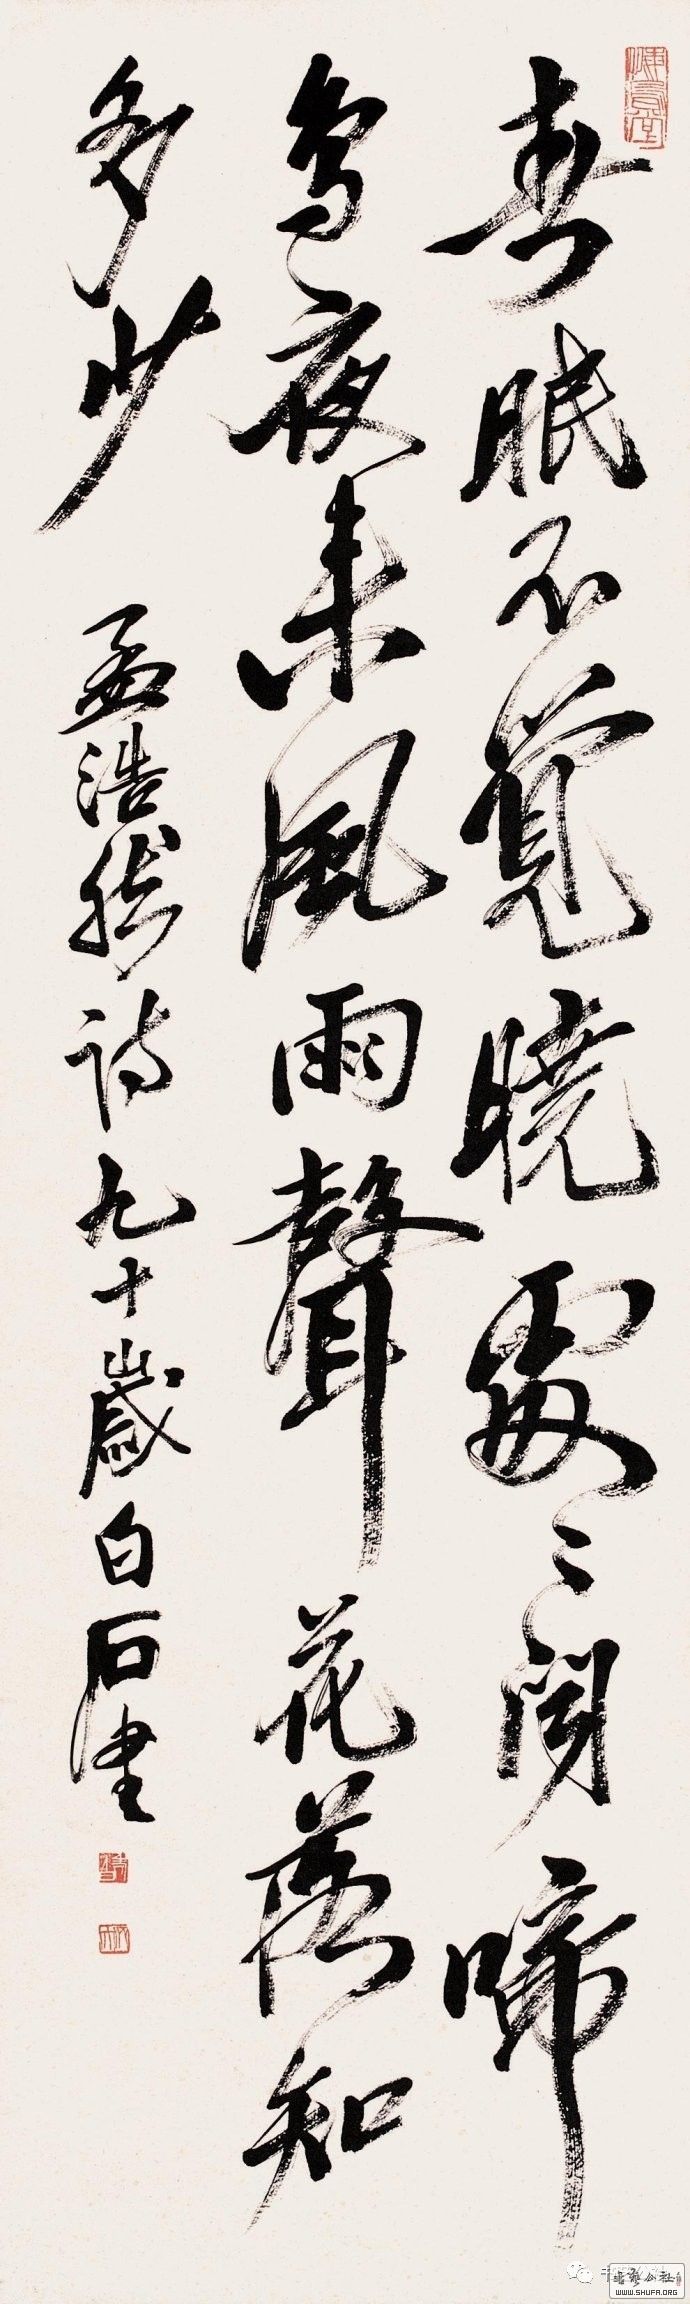 春眠不覺曉處〻聞啼
鳥夜来風雨聲花落知
多少 孟浩然詩九十歲白石書
書藝公社
WWW.SHUFA.ORG